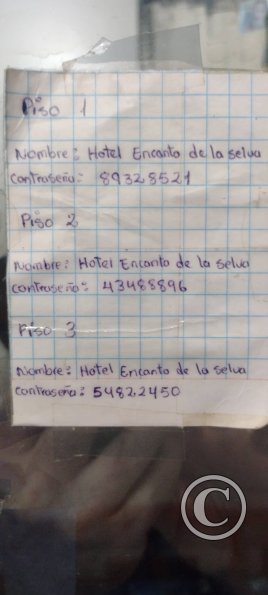 Piso 1
Nombre: Hotel Encanto de la selva
Contraseña: 89328521
Piso 2
Nombre: Hotel Encanto de la selva
Contraseña: 43488896
Piso 3
Nombre: Hotel Encanto de la selva
Contraseña: 54822450
©